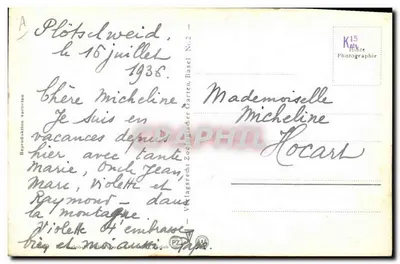 A
Plötschweid,
le 16 juillet
1936.
Chère Micheline
Je suis en
vacances depuis
hier avec tante
Marie, Oncle Jean,
Marc, Violette et
Raymond - dans
la montagne
Violette t'embrasse
bien et moi aussi. Papa.
Reproduktion verboten
Verlagsrecht: Zoologischer Garten, Basel Nr. 2
K 15
Echte
Photographie
Mademoiselle
Micheline
Hocart